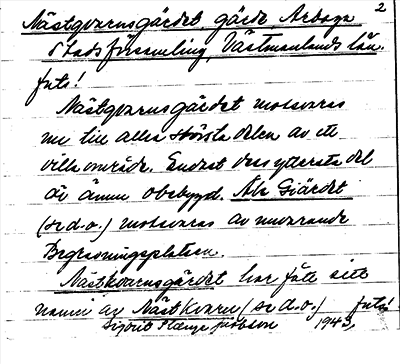 2
Nästqvarnsgärdet, gärde, Arboga
Stadsförsamling, Västmanlands län.
forts!
Nästqvarnsgärdet motsvaras
nu till allra största delen av ett
villaområde. Endast dess yttersta del
är ännu obebyggd. Åla Giärdet
(se d.o.) motsvaras av nuvarande
Begravningsplatsen.
Nästkvarnsgärdet har fått sitt
namn av Nästkvarn (se d.o.) forts!
Sigurd 1943.